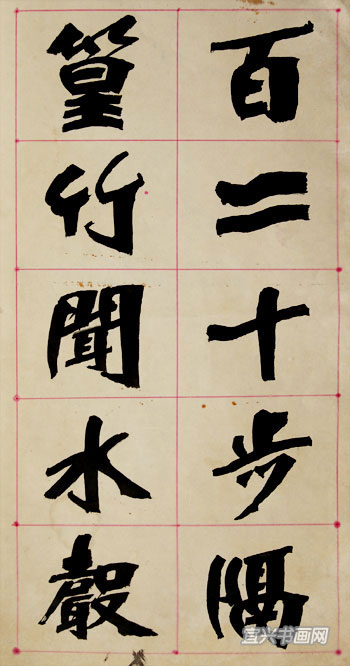 百二十步隔
篁竹聞水聲
宜兴书画网